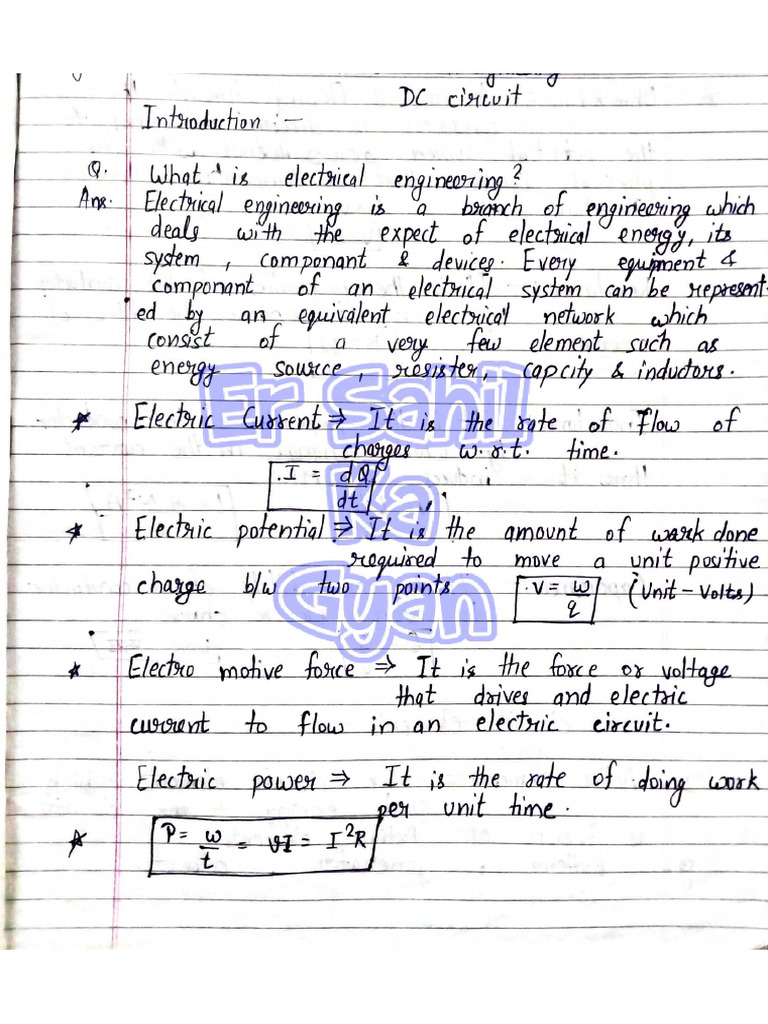 DC circuit
Introduction :-
Q. What is electrical engineering?
Ans. Electrical engineering is a branch of engineering which
deals with the expect of electrical energy, its
system, componant & devices. Every equipment &
componant of an electrical system can be represent-
ed by an equivalent electrical network which
consist of a very few element such as
energy source, resister, capcity & inductors.
* Electric Current ⇒ It is the rate of flow of
charges w.r.t. time.
I = dQ/dt
* Electric potential ⇒ It is the amount of work done
required to move a unit positive
charge b/w two points V = w/q (Unit - Volts)
* Electro motive force ⇒ It is the force or voltage
that drives and electric
current to flow in an electric circuit.
Electric power ⇒ It is the rate of doing work
per unit time.
* P = w/t = VI = I²R
Er Sahil
Ka
Gyan